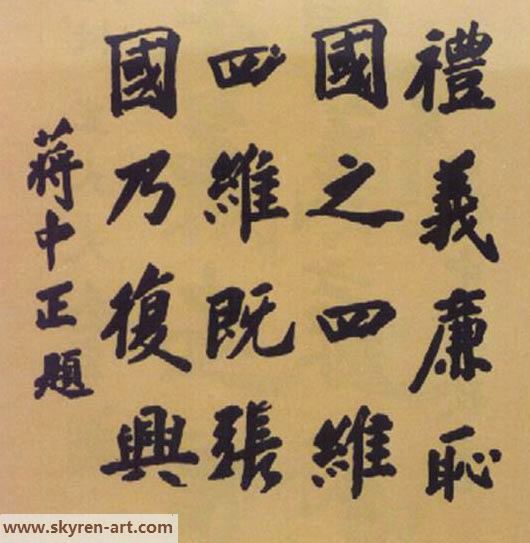 禮義廉恥
國之四維
四維既張
國乃復興
蔣中正題
www.skyren-art.com